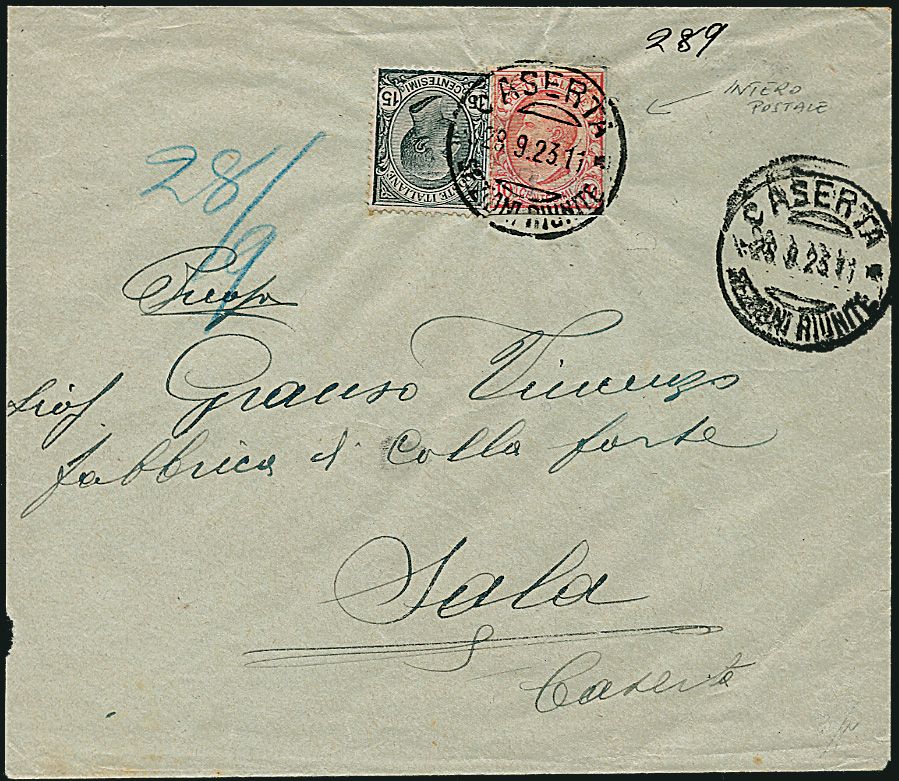 289
INTERO
POSTALE
15 CENTESIMI 15
POSTE ITALIANE
CASERTA
28.9.23 11
REZIONI RIUNITE
CASERTA
28.9.23 11
REZIONI RIUNITE
28/9
Grauso Vincenzo
fabbrica di Colla forte
Sala
Caserta